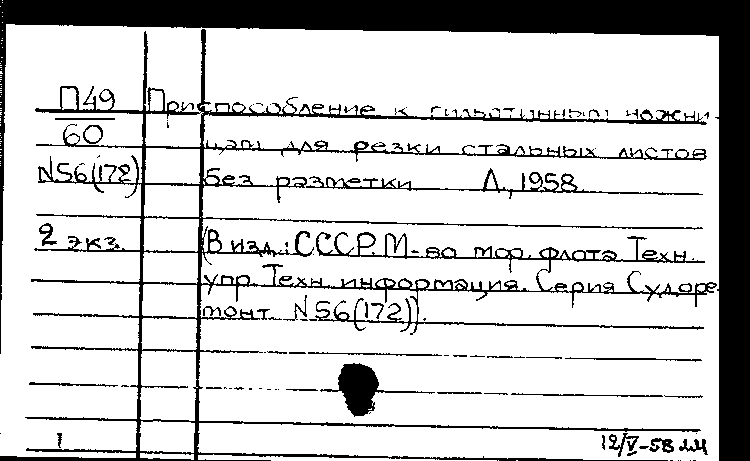 П49 Приспособление к гильотинным ножни-
60 цам для резки стальных листов
N56(172) без разметки Л., 1958
2 экз. (В изд.: СССР. М-во мор. флота Техн.
упр. Техн. информация. Серия Судоре-
монт N56(172)).
1 12/V-58